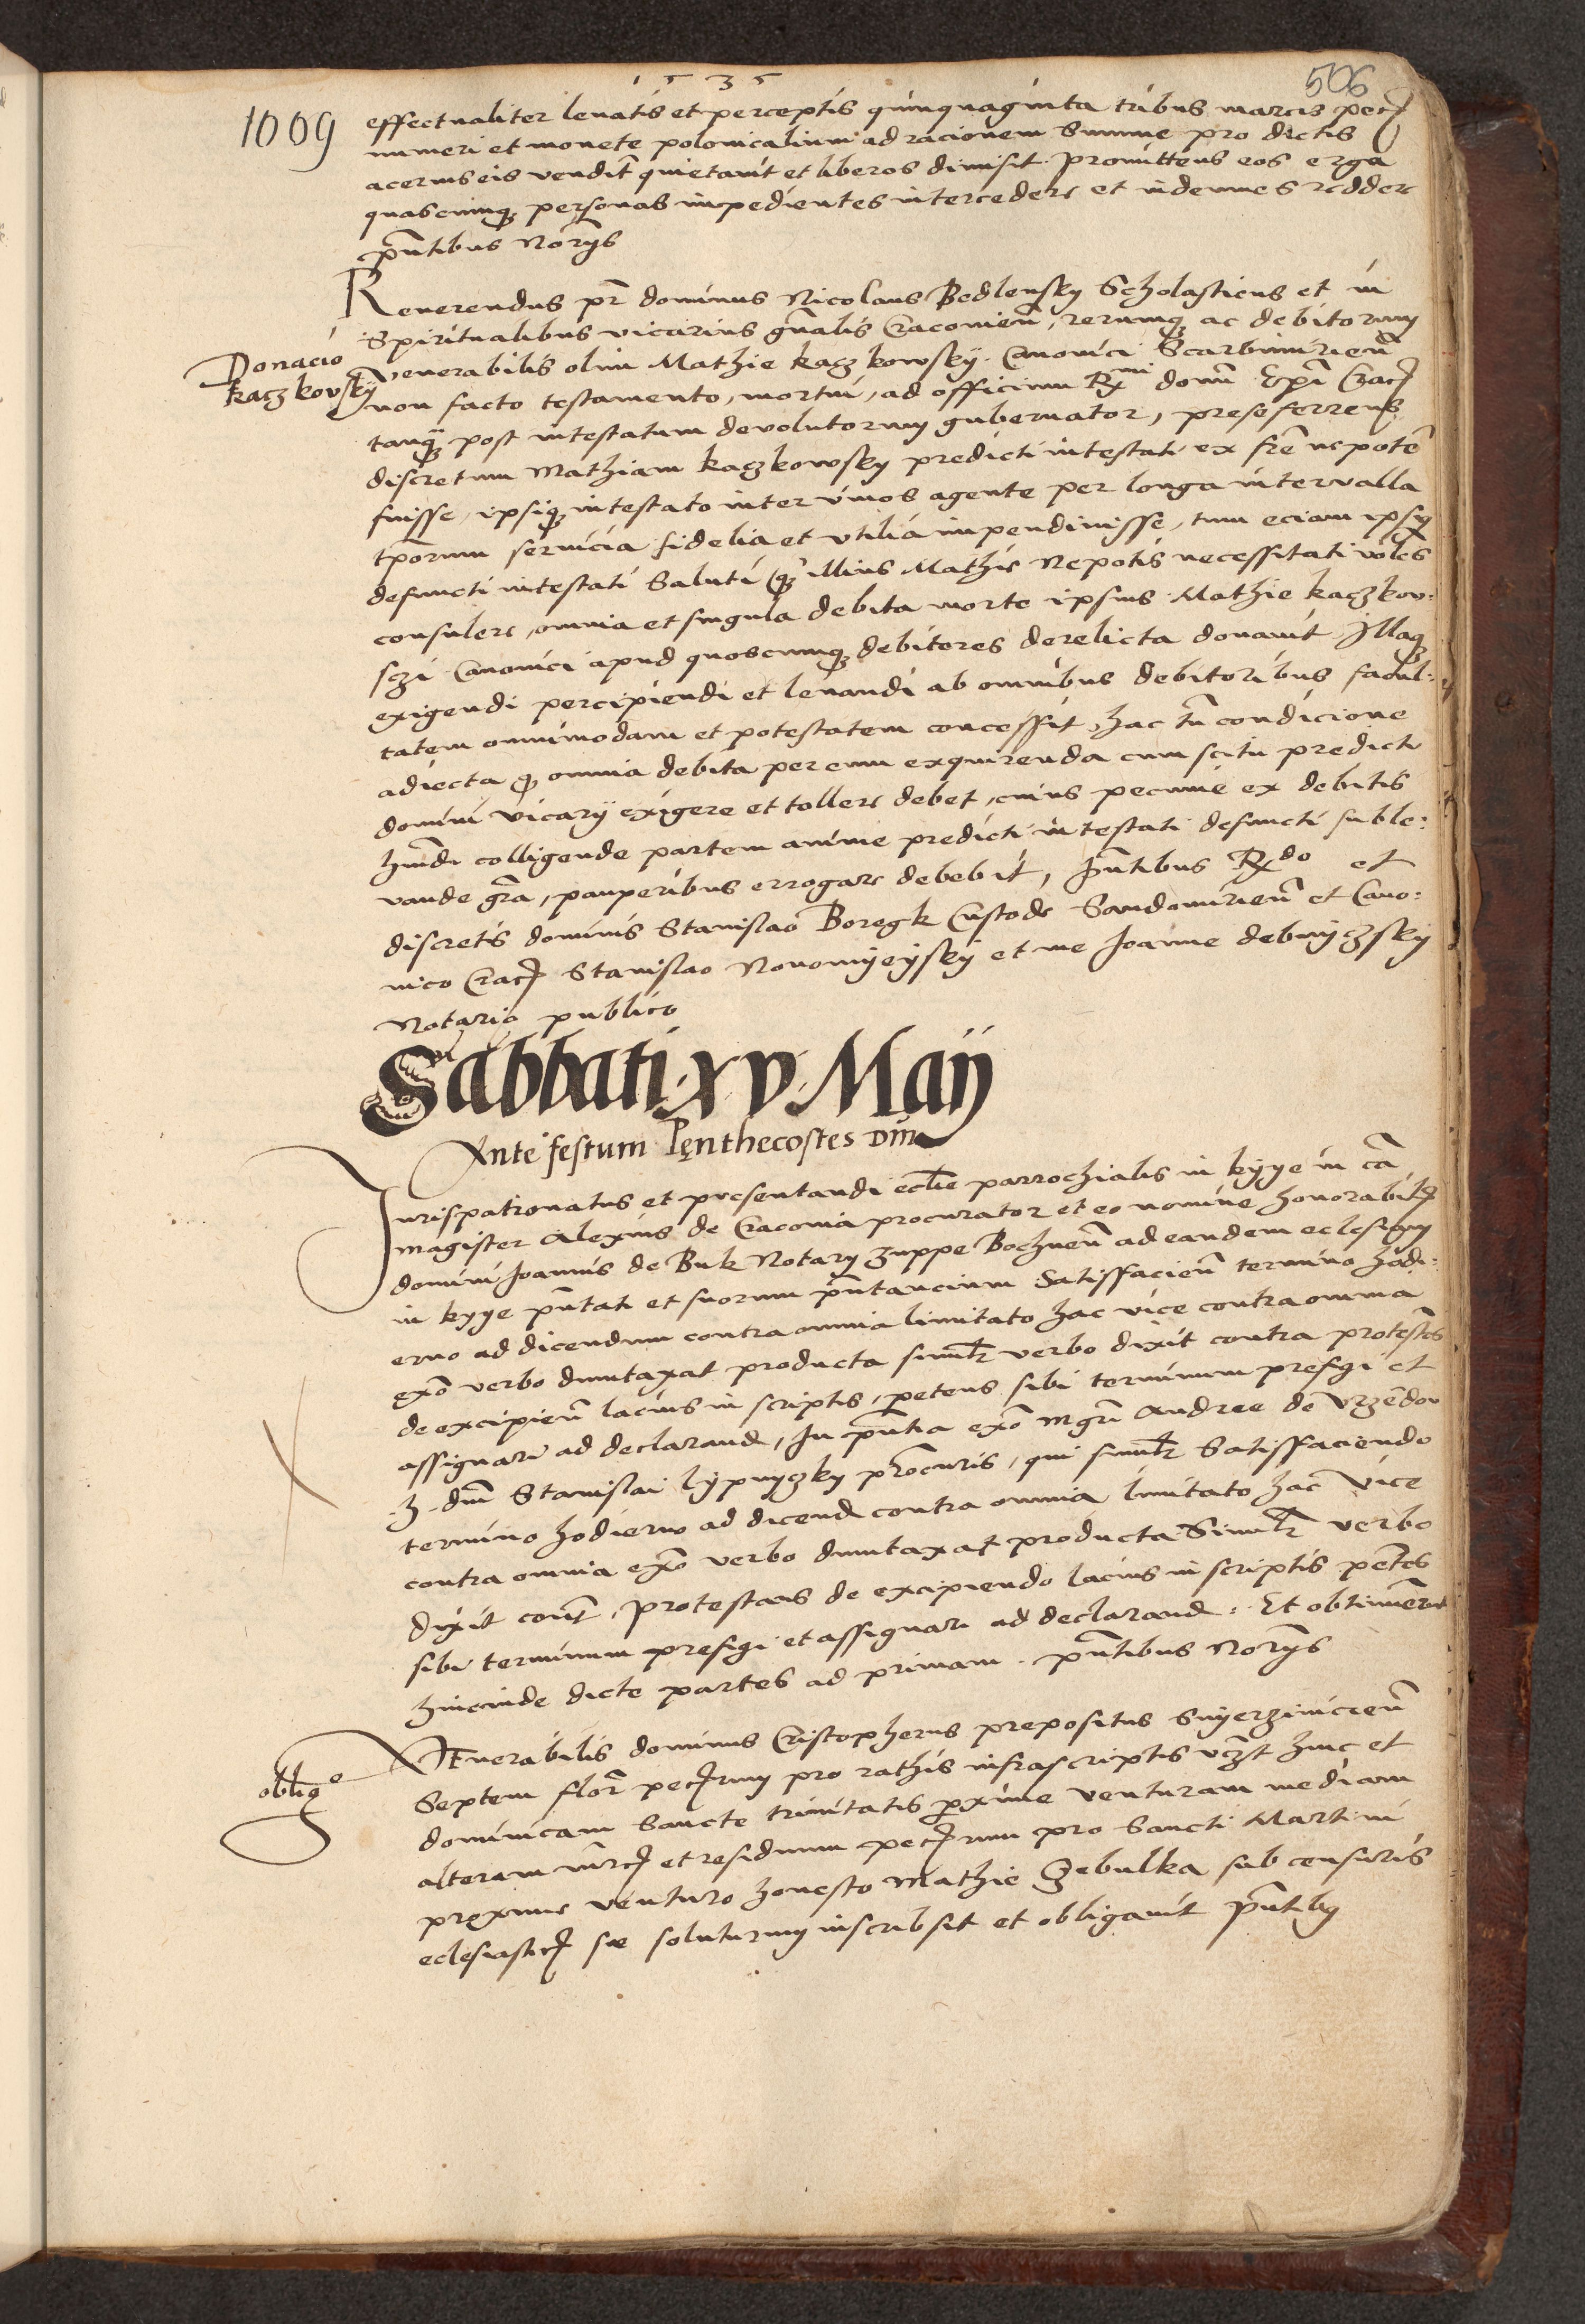 1535
506
1009
effectualiter levatis et perceptis quinquaginta tribus marcis pec
numeri et monete polonicalium ad racionem Summe pro dictis
acervis eis vendit quietavit et liberos dimisit. Promittens eos erga
quascumq personas impedientes intercedere et indemnes reddere
pntibus Norys
Reverendus pr dominus Nicolaus Bedlensky Scholasticus et in
Spiritualibus vicarius gnalis Cracovien, rerumq ac debitorum
Donacio
kaczkovsky
venerabilis olim Mathie kaczkowsky Canonici Scarbimirien
non facto testamento, mortui, ad officium Rmi domi Epi Crac
tanq post intestatum devolutorum gubernator, prese ferrens
discretum Mathiam kaczkowsky predicti intestati ex fre nepote
fuisse, ipsiq intestato inter vivos agente per longa intervalla
tporum servicia fidelia et utilia impendivisse, tum eciam ipsi
defuncti intestati Saluti q illius Mathie Nepotis necessitati voles
consulere, omnia et singula debita morte ipsius Mathie kaczkow:
sci Canonici apud quoscumq debitores derelicta donavit Illaq
exigendi percipiendi et levandi ab omnibus debitoribus facul:
tatem omnimodam et potestatem concessit, hac tn condicione
adiecta q omnia debita per eum exquirenda cum scitu predicti
domini vicarij exigere et tollere debet, cuius pecunie ex debitis
hmdi colligende partem anime predicti intestati defuncti suble:
vande gra, pauperibus errogare debebit, Pntibus Rdo et
discretis dominis Stanislao Boregk Custode Sandomirien et Cano:
nico Crac Stanislao Novomyeysky et me Joanne debnyczsky
Notario publico
Sabbati. xv. Maij
Ante festum Penthecostes Dni
Jurispatronatus et presentandi eclie parrochialis in kyye in ca
magister Alexius de Cracovia procurator et eo nomine honorabilis
domini Joannis de Buk Notary zuppe Bochnen ad eandem eclesiam
in kyye pntati et suorum pntancium Satisfacien termino hodi:
erno ad dicendum contra omnia limitato hac vice contra omnia
exo verbo dumtaxat producta similr verbo dixit contra protestans
de excipien lacius in scriptis, petens sibi terminum prefigi et
assignari ad declarand, In pntia exo mgri Andree de Urzendow
.h. dni Stanislai lypnyczky procuris, qui similr Satisfaciendo
termino hodierno ad dicend contra omnia limitato hac vice
contra omnia exo verbo dumtaxat producta Similr verbo
dixit cont, Protestans de excipiendo lacius in scriptis petes
sibi terminum prefigi et assignari ad declarand. Et obtinuerut
hincinde dicte partes ad primam. pntibus Norys
obligo
Venerabilis dominus Cristopherus prepositus Smyerzivicien
Septem flor pecrum pro rathis infrascriptis vczt hinc et
dominicam Sancte trinitatis proxime venturam mediam
alteram mrc et residuum pecrum pro Sancti Martini
proxime venturo honesto Mathie Czebulka sub censuris
eclesiastic se soluturum inscribsit et obligavit pntibus